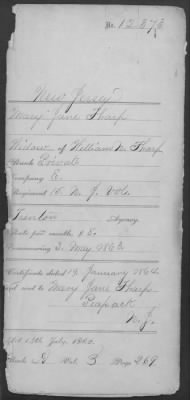 No. 12 575
New Jersey
Mary Jane Tharp
Widow of William N. Tharp
Rank Private
Company E.
Regiment 15 N. J. Vols
Trenton Agency
Rate per month, $8.
Commencing 3. May 1863
Certificate dated 19. January 1864
and sent to Mary Jane Tharp
Peapack
N. J.
Act 14th July, 1862.
Book D Vol. 3 Page 269